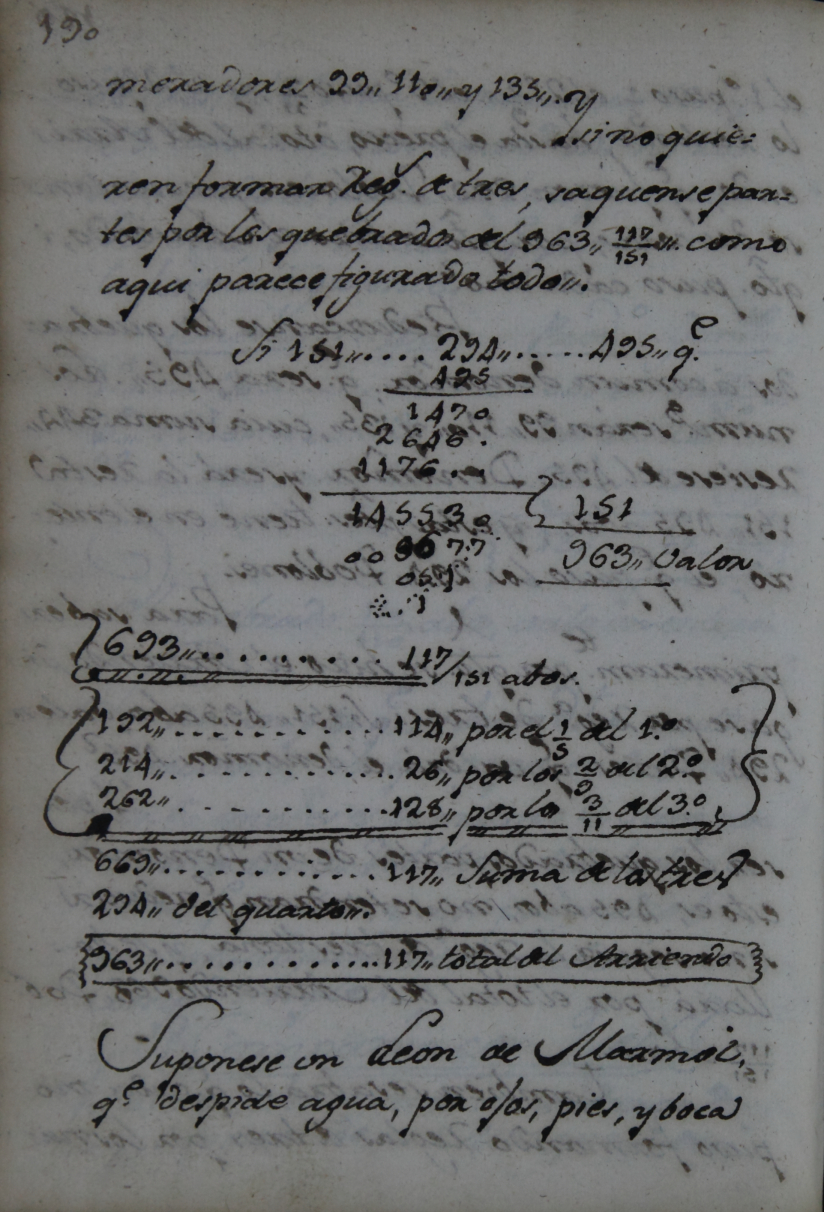 190
meradores 99,, 110,, y 135,,. y
si no quie=
ren formar Reg.ˢ de tres, saquense par=
tes por los quebrados del 963,, 117/151,,. como
aqui parece figurado todo,,.
Si 151,,..... 294,,...... 495,, q.ᵉ
495
1470
2646.
1176..
145530 151
963,, Valor
693,,......... 117/151 abos.
192,,............114,, por el 1/5 del 1.º
214,,............26,, por los 2/9 del 2.º
262,,............128,, por los 3/11 del 3.º
669,,............117,, Suma de los tres
294,, del quarto,,.
963,,............117,, total del Arriendo
Suponese un Leon de Marmol,
q.ᵉ despide agua, por ojos, pies, y boca